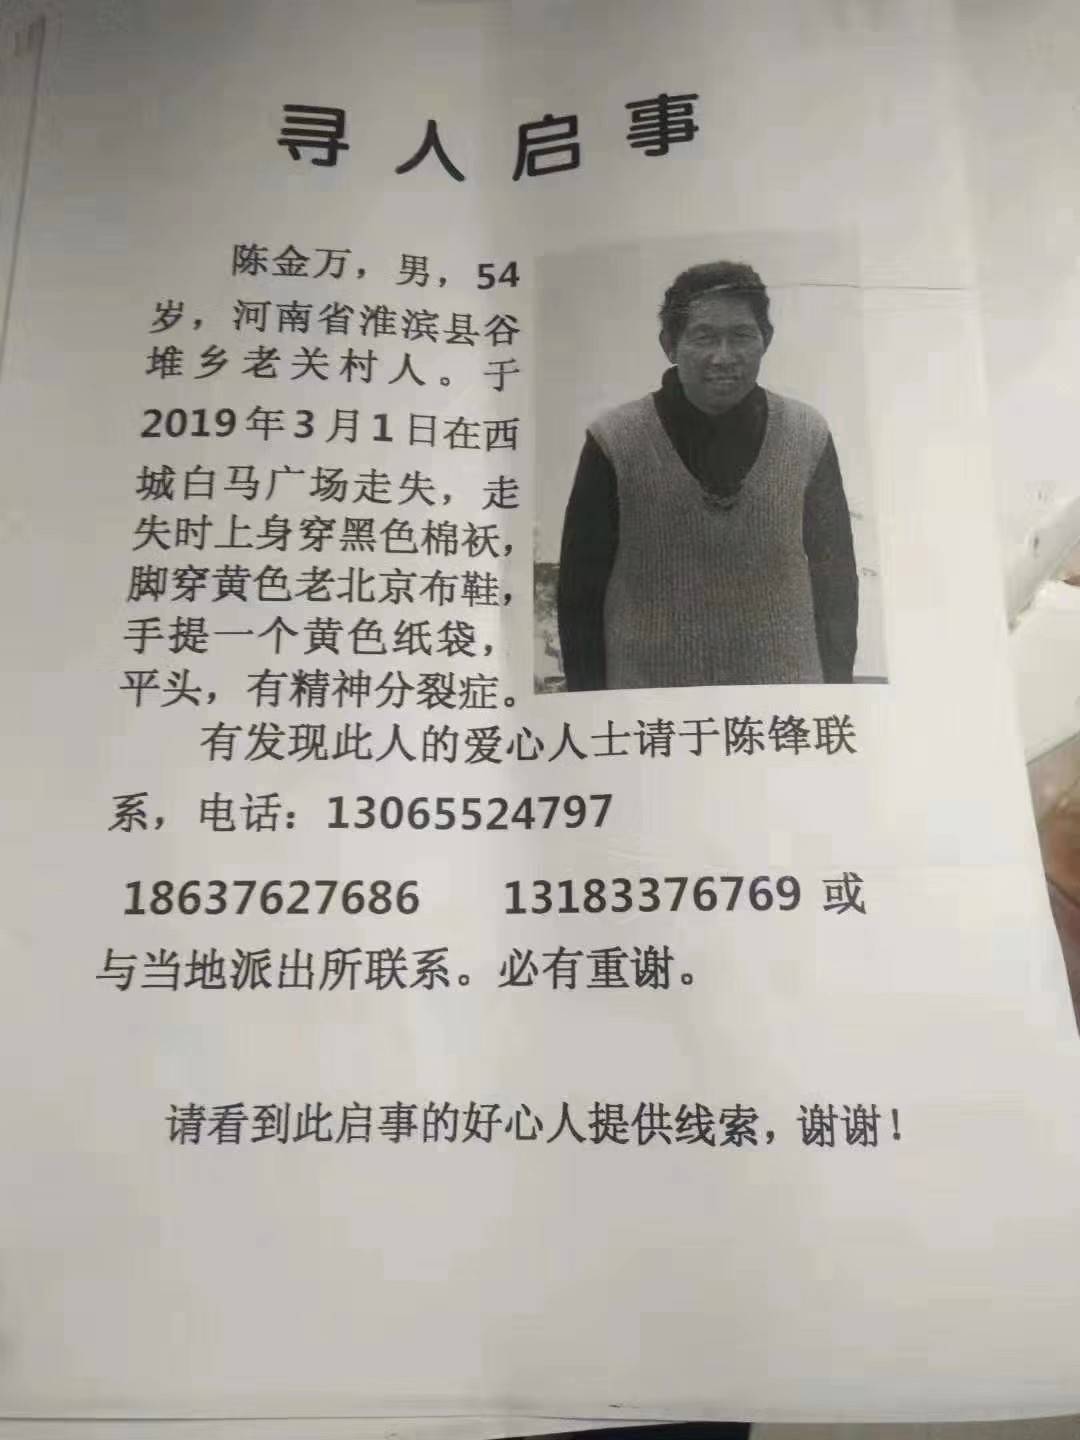 寻人启事
陈金万，男，54
岁，河南省淮滨县谷
堆乡老关村人。于
2019年3月1日在西
城白马广场走失，走
失时上身穿黑色棉袄，
脚穿黄色老北京布鞋，
手提一个黄色纸袋，
平头，有精神分裂症。
有发现此人的爱心人士请于陈锋联
系，电话：13065524797
18637627686 13183376769 或
与当地派出所联系。必有重谢。
请看到此启事的好心人提供线索，谢谢！